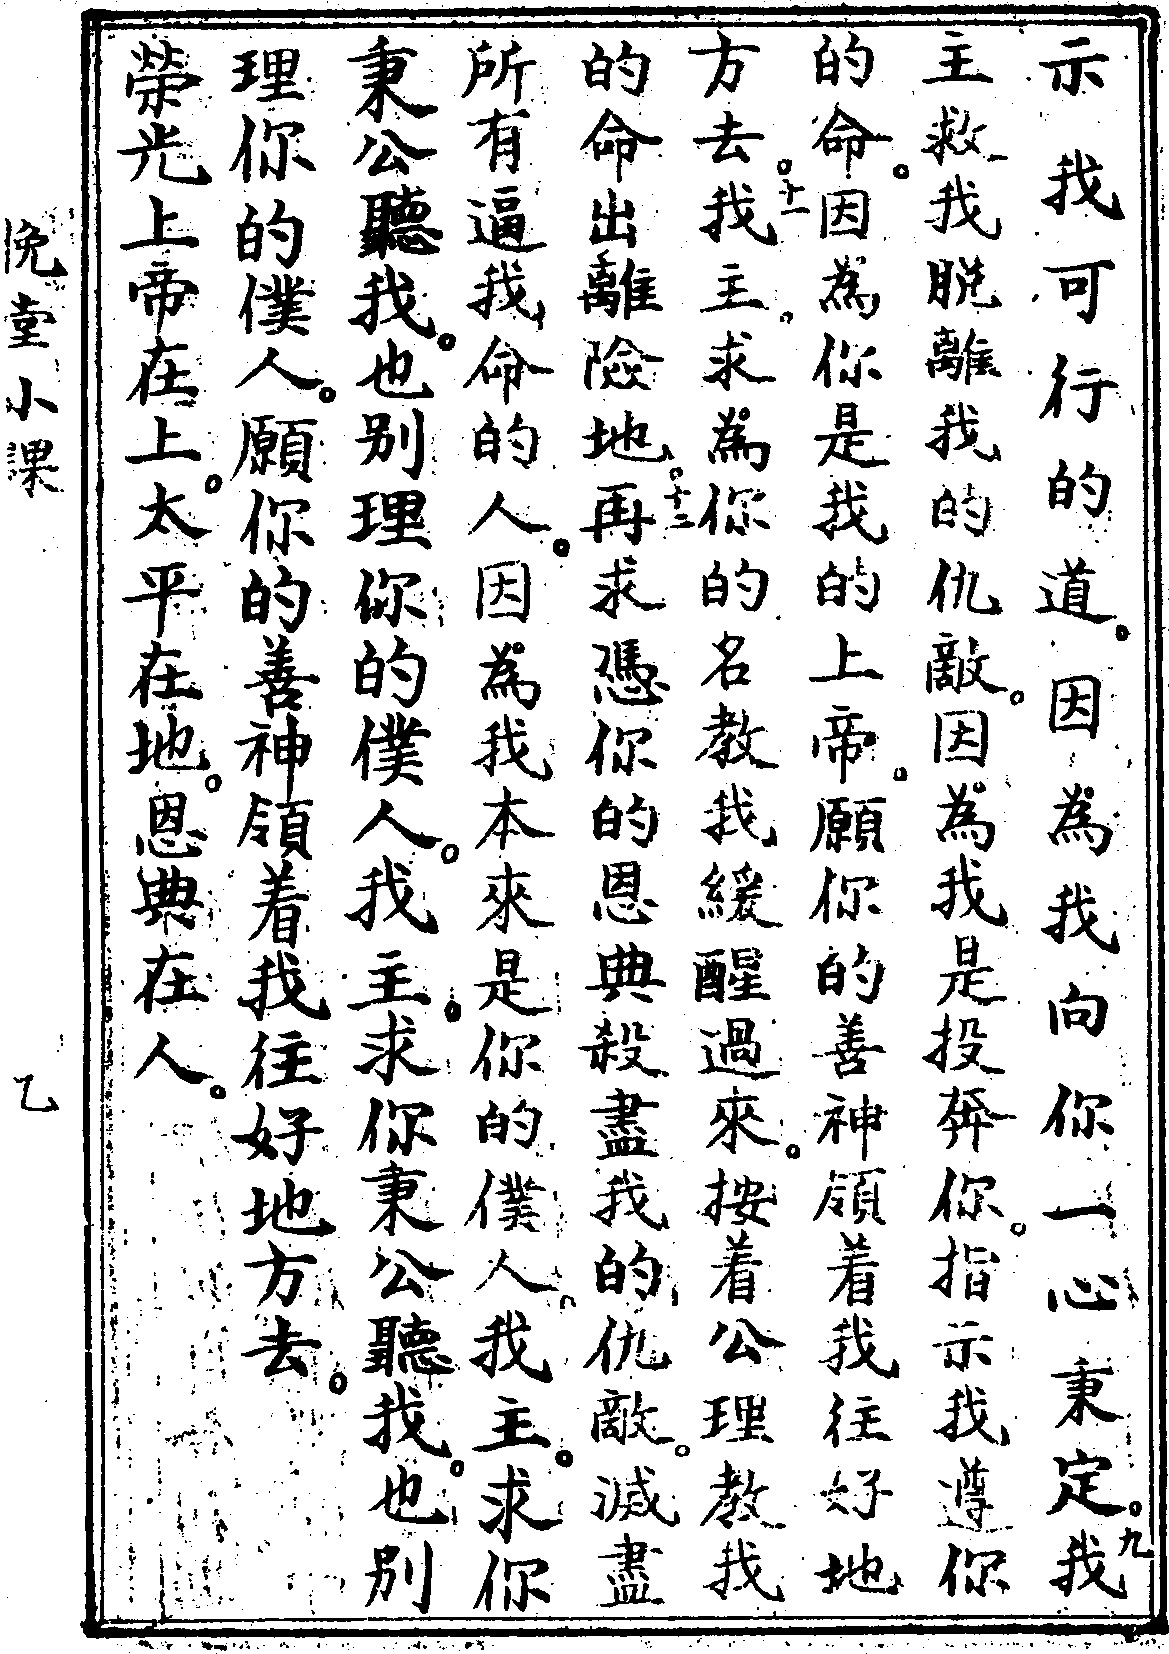 示我可行的道。因為我向你一心秉定。九我
主救我脫離我的仇敵。因為我是投奔你。指示我遵你
的命。因為你是我的上帝。願你的善神領着我往好地
方去。十一我主。求為你的名教我緩醒過來。按着公理教我
的命出離險地。十二再求憑你的恩典殺盡我的仇敵。滅盡
所有逼我命的人。因為我本來是你的僕人我主。求你
秉公聽我。也別理你的僕人。我主。求你秉公聽我。也別
理你的僕人。願你的善神領着我往好地方去。
榮光上帝在上。太平在地。恩典在人。
晚堂小課
乙